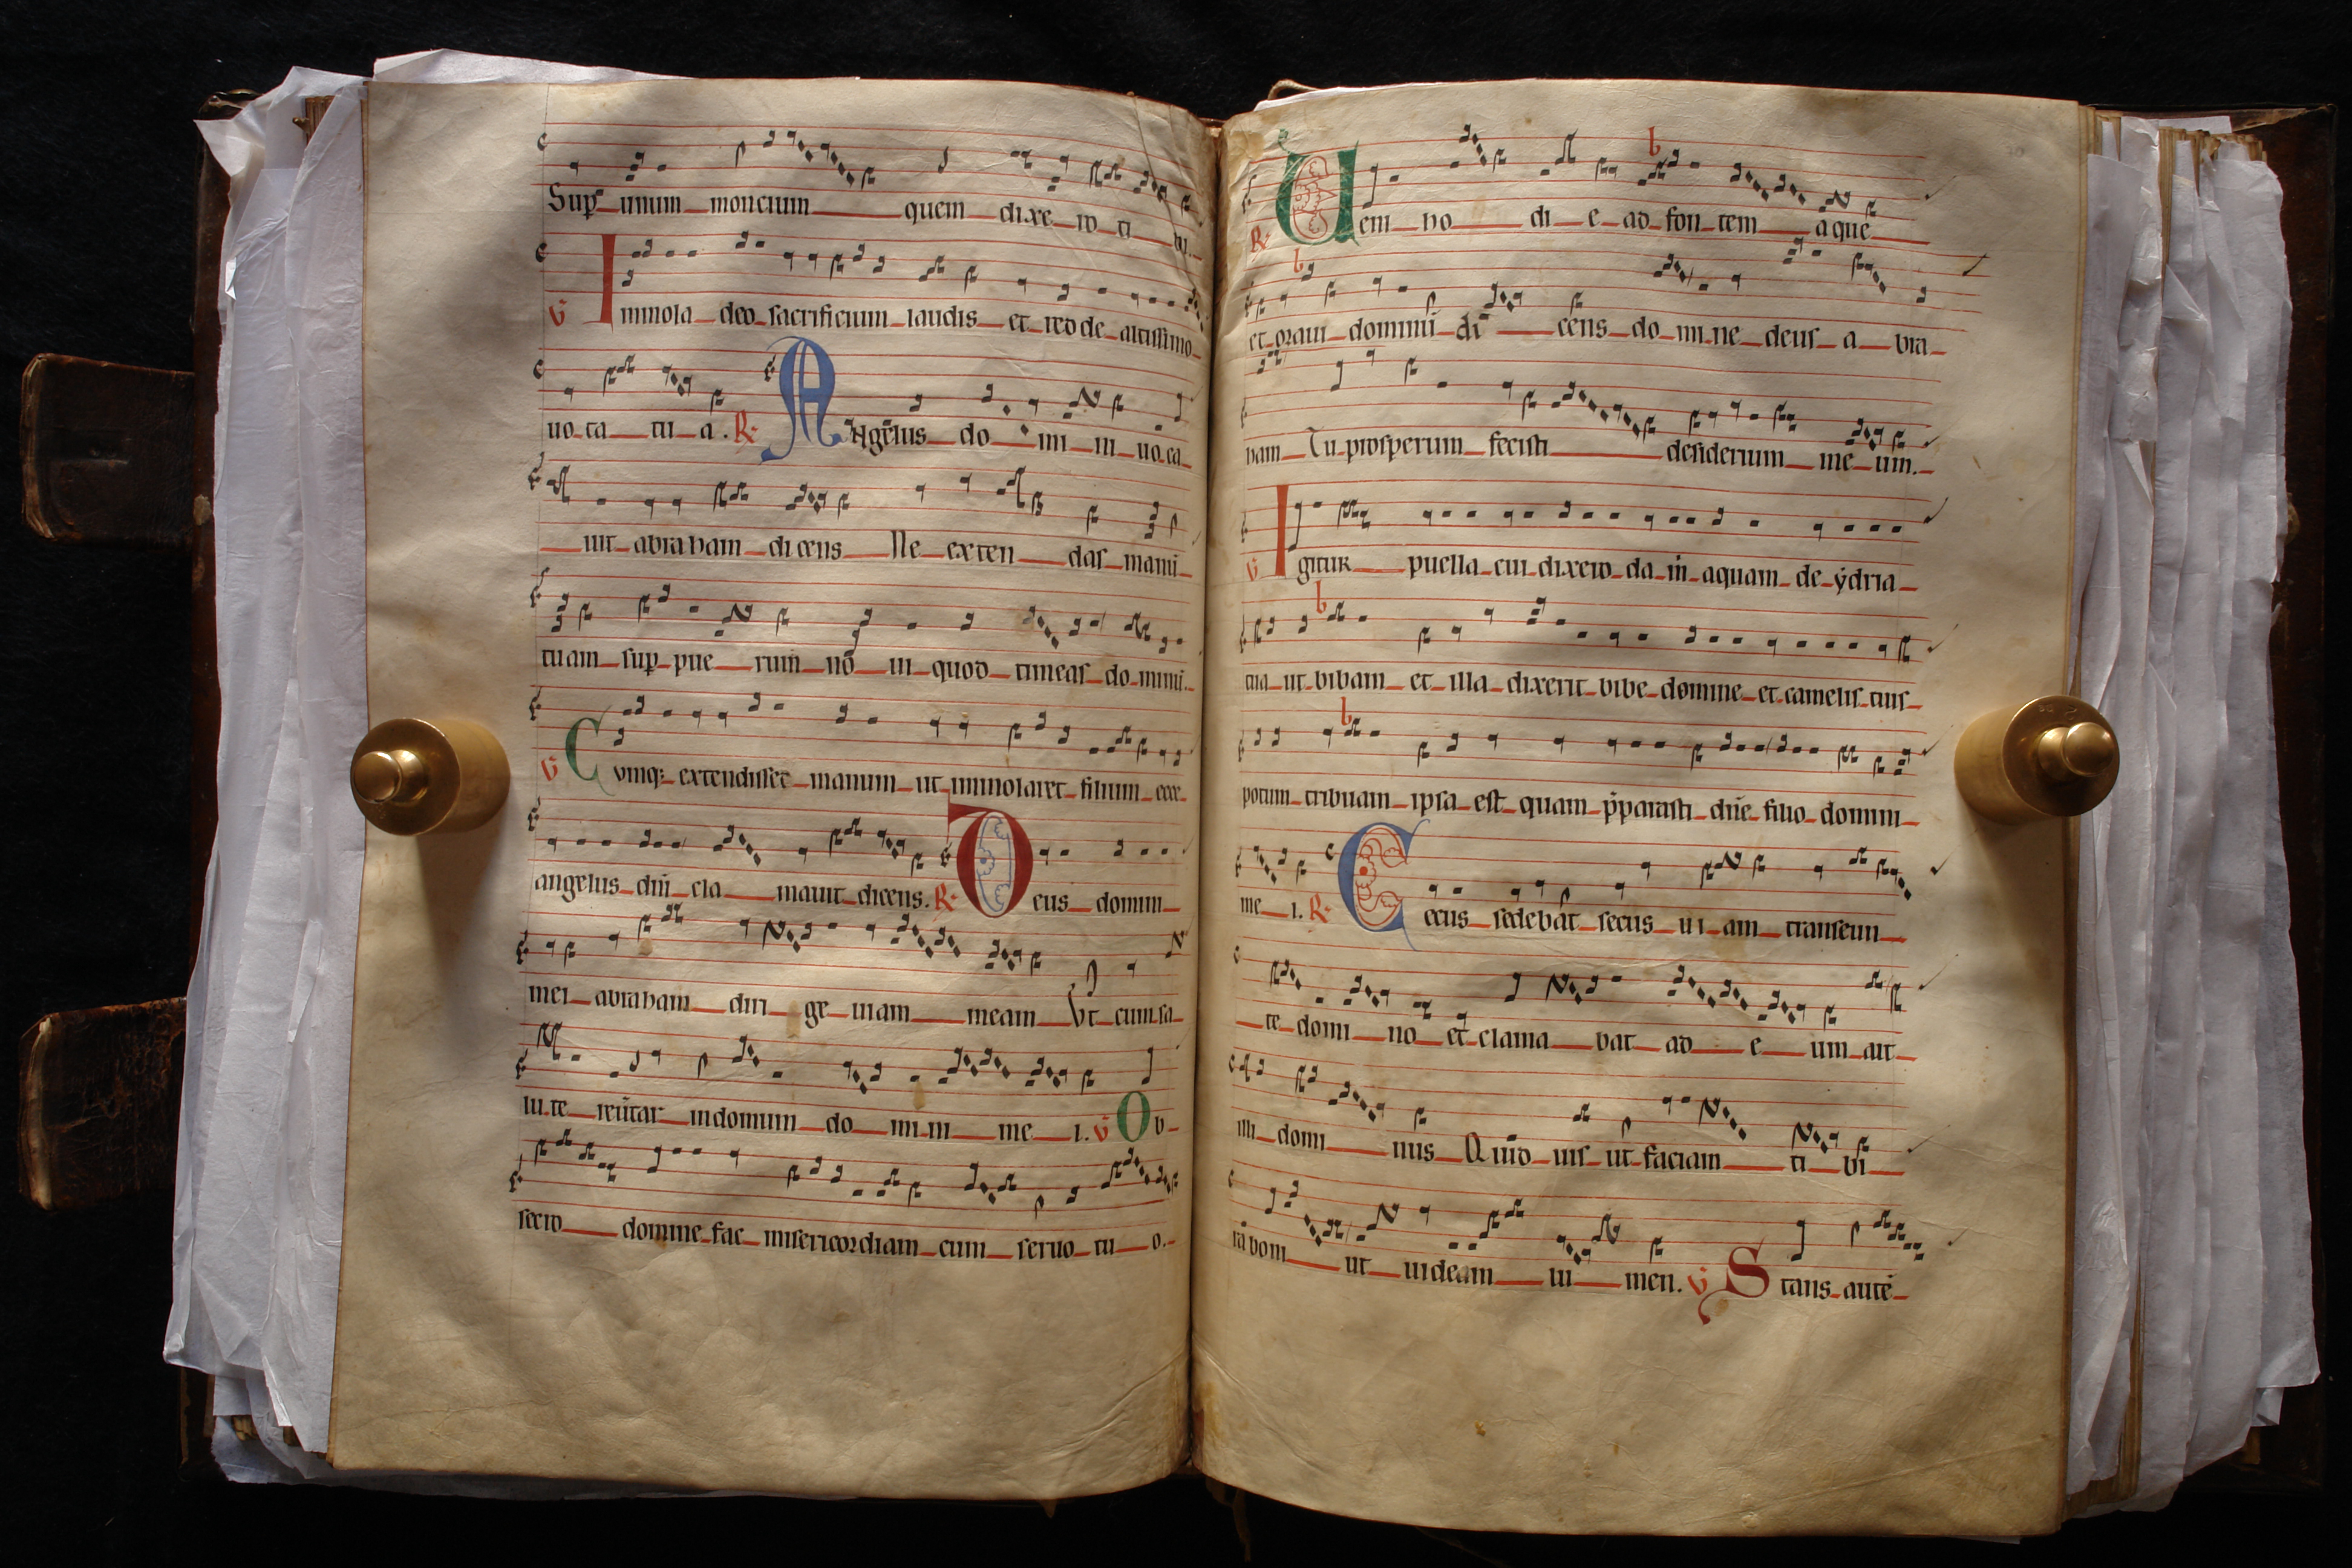 Sup unum moncium quem dixe ro ti bi.
V Immola deo sacrificium laudis et redde altissimo
uo ta tu a. R Angelus do mi ni uo ca
uit abraham dicens Ne exten das manū
tuam sup pue rum nō ui quod timeas do minū.
V Cvmq; extendisset manum ut immolaret filium ecce
angelus dñi cla mauit dicens. R Deus domini
mei abraham diri ge uiam meam Vt cum sa
lu te reūtar in domum do mi ni me i. V Ob
secro domine fac misericordiam cum seruo tu o.
R Uem ho di e ad fon tem aque
et oraui dominū di cens do mi ne deus a bra
ham Tu prosperum fecisti desiderium me um.
V Igitur puella cui dixero da m aquam de ẏdria
tua ut bibam et illa dixerit bibe domine et camelis tuis
potum tribuam ipsa est quam p̄parasti dñe filio domini
me i. R Cecus sedebat secus ui am transeun
te domi no et clama bat ad e um ait
illi domi nus Quid uis ut faciam ti bi
rabom ut uideam lu men. V Stans autē